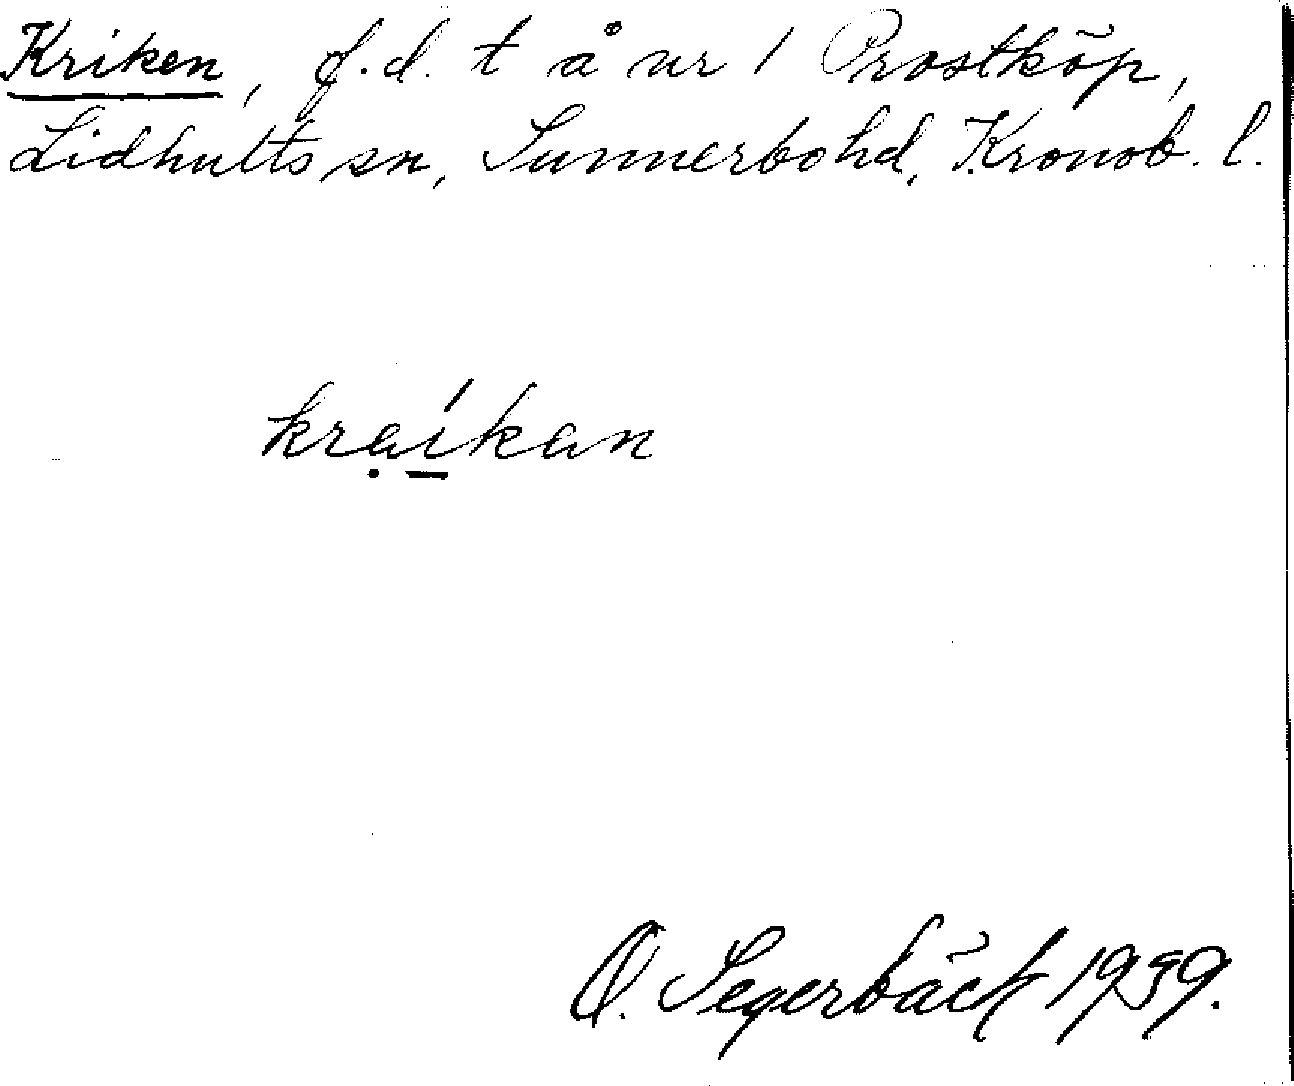 Kriken, f.d. t å nr 1 Prostköp,
Lidhults sn, Sunnerbo hd, Kronob. l.
kra̤íkan
O. Segerbäck 1939.